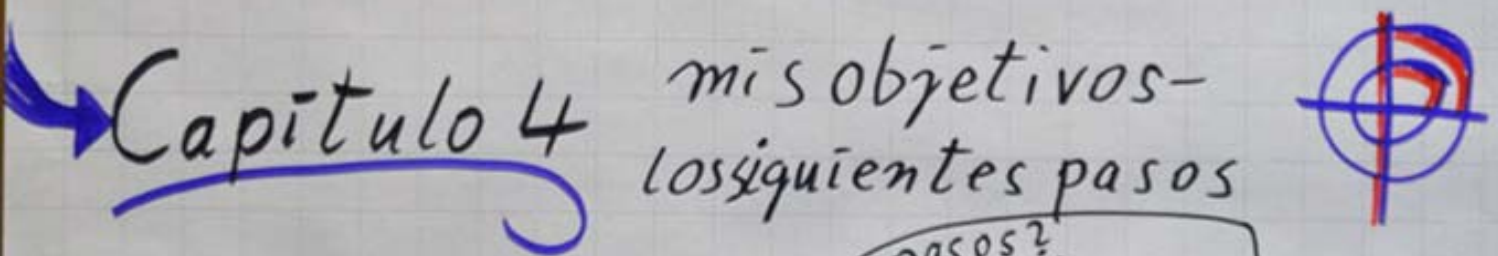 Capítulo 4
mis objetivos-
los siguientes pasos
pasos?